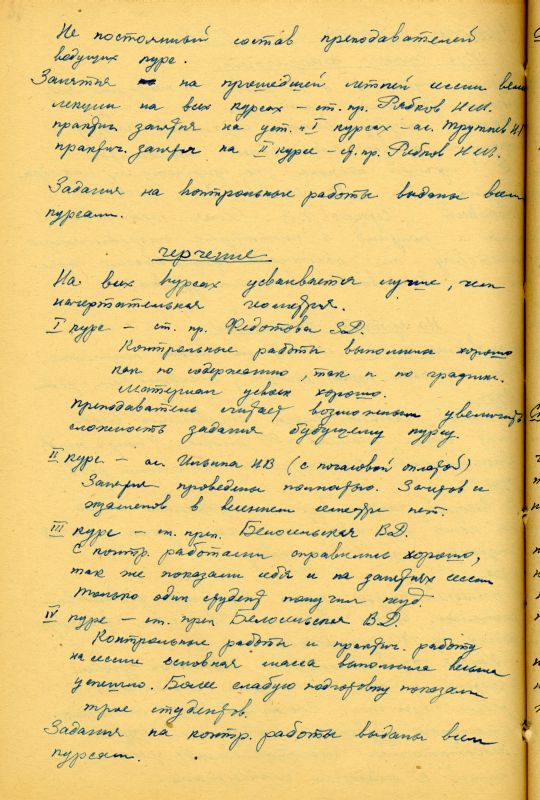 Не постоянный состав преподавателей
ведущих курс.
Занятия на прошедшей летней сессии вели
лекции на всех курсах – ст. пр. Рябков Н.И.
практич. занятия на уст. и I курсах – ас.
практич. занятия на II курсе – ст. пр. Рябков Н.И.
Задания на контрольные работы выданы всем
курсам.
Черчение
На всех курсах усваивается лучше, чем
начертательная геометрия.
I курс – ст. пр. Федотова З.Д.
Контрольные работы выполнены хорошо
как по содержанию, так и по графике.
Материал усвоен хорошо.
Преподаватель считает возможным увеличить
сложность задания будущему курсу.
II курс – ас. Ильина НВ (с почасовой оплатой)
Занятия проведены полностью. Зачетов и
экзаменов в весеннем семестре нет.
III курс – ст. преп. Белосельская В.Д.
С контр. работами справились хорошо,
так же показали себя и на занятиях сессии
только один студент получил неуд.
IV курс – ст. преп Белосельская В.Д.
Контрольные работы и практич. работу
на сессии основная масса выполнила весьма
успешно. Более слабую подготовку показали
трое студентов.
Задания на контр. работы выданы всем
курсам.